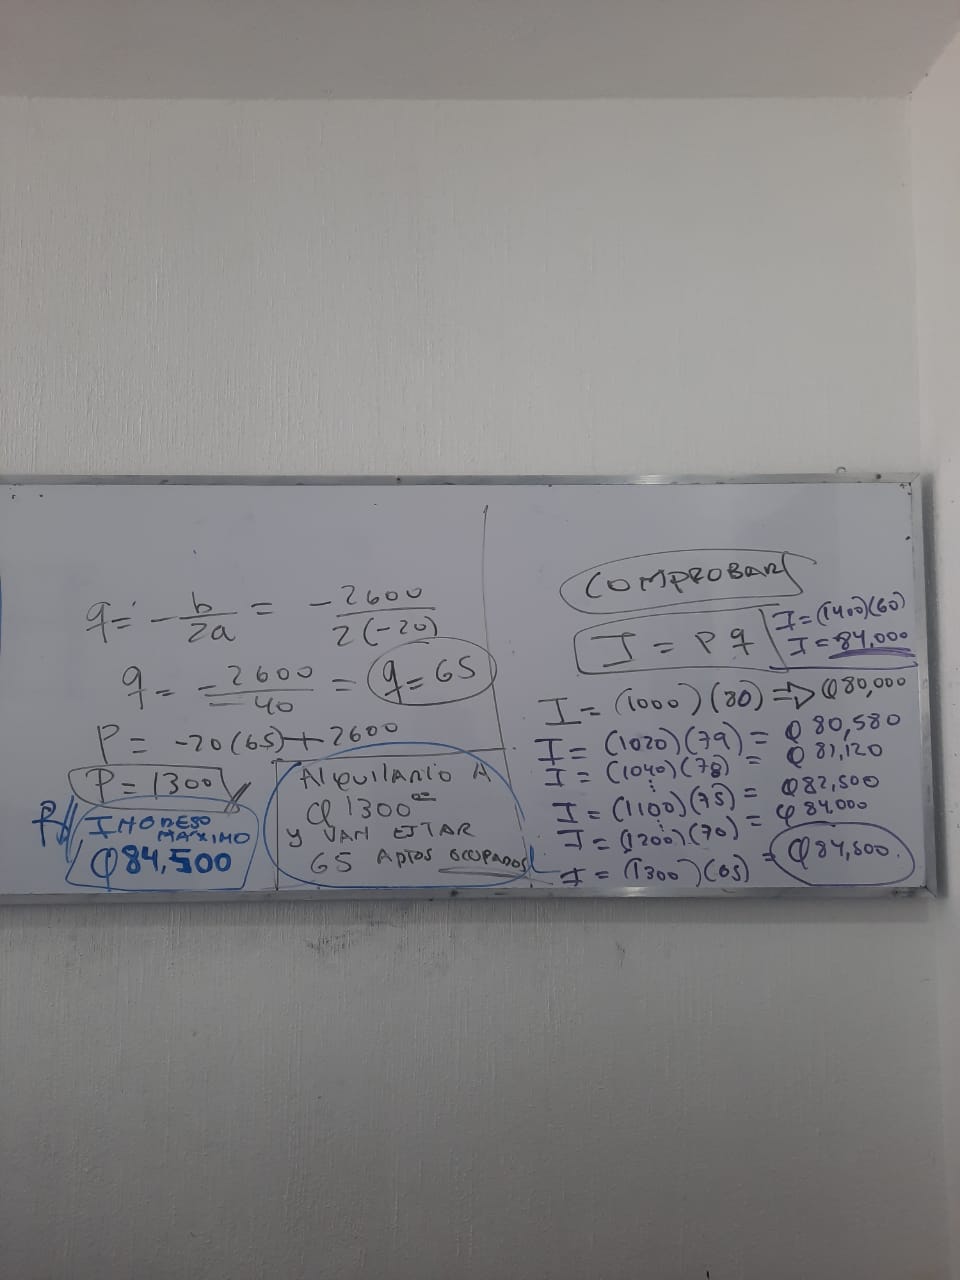 q = - b/2a = - 2600/2(-20)
q = - 2600/-40 = q = 65
P = -20(65)+2600
P = 1300
R//
INGRESO
MAXIMO
Q84,500
Alquilarlo A
Q1300
y VAN ESTAR
65 Aptos OCUPADOS
COMPROBAR
I = Pq
I=(1400)(60)
I = 84,000
I = (1000)(80) ⇒ Q80,000
I = (1020)(79) = Q80,580
I = (1040)(78) = Q81,120
⋮
I = (1100)(75) = Q82,500
I = (1200)(70) = Q84,000
⋮
I = (1300)(65) = Q84,500.